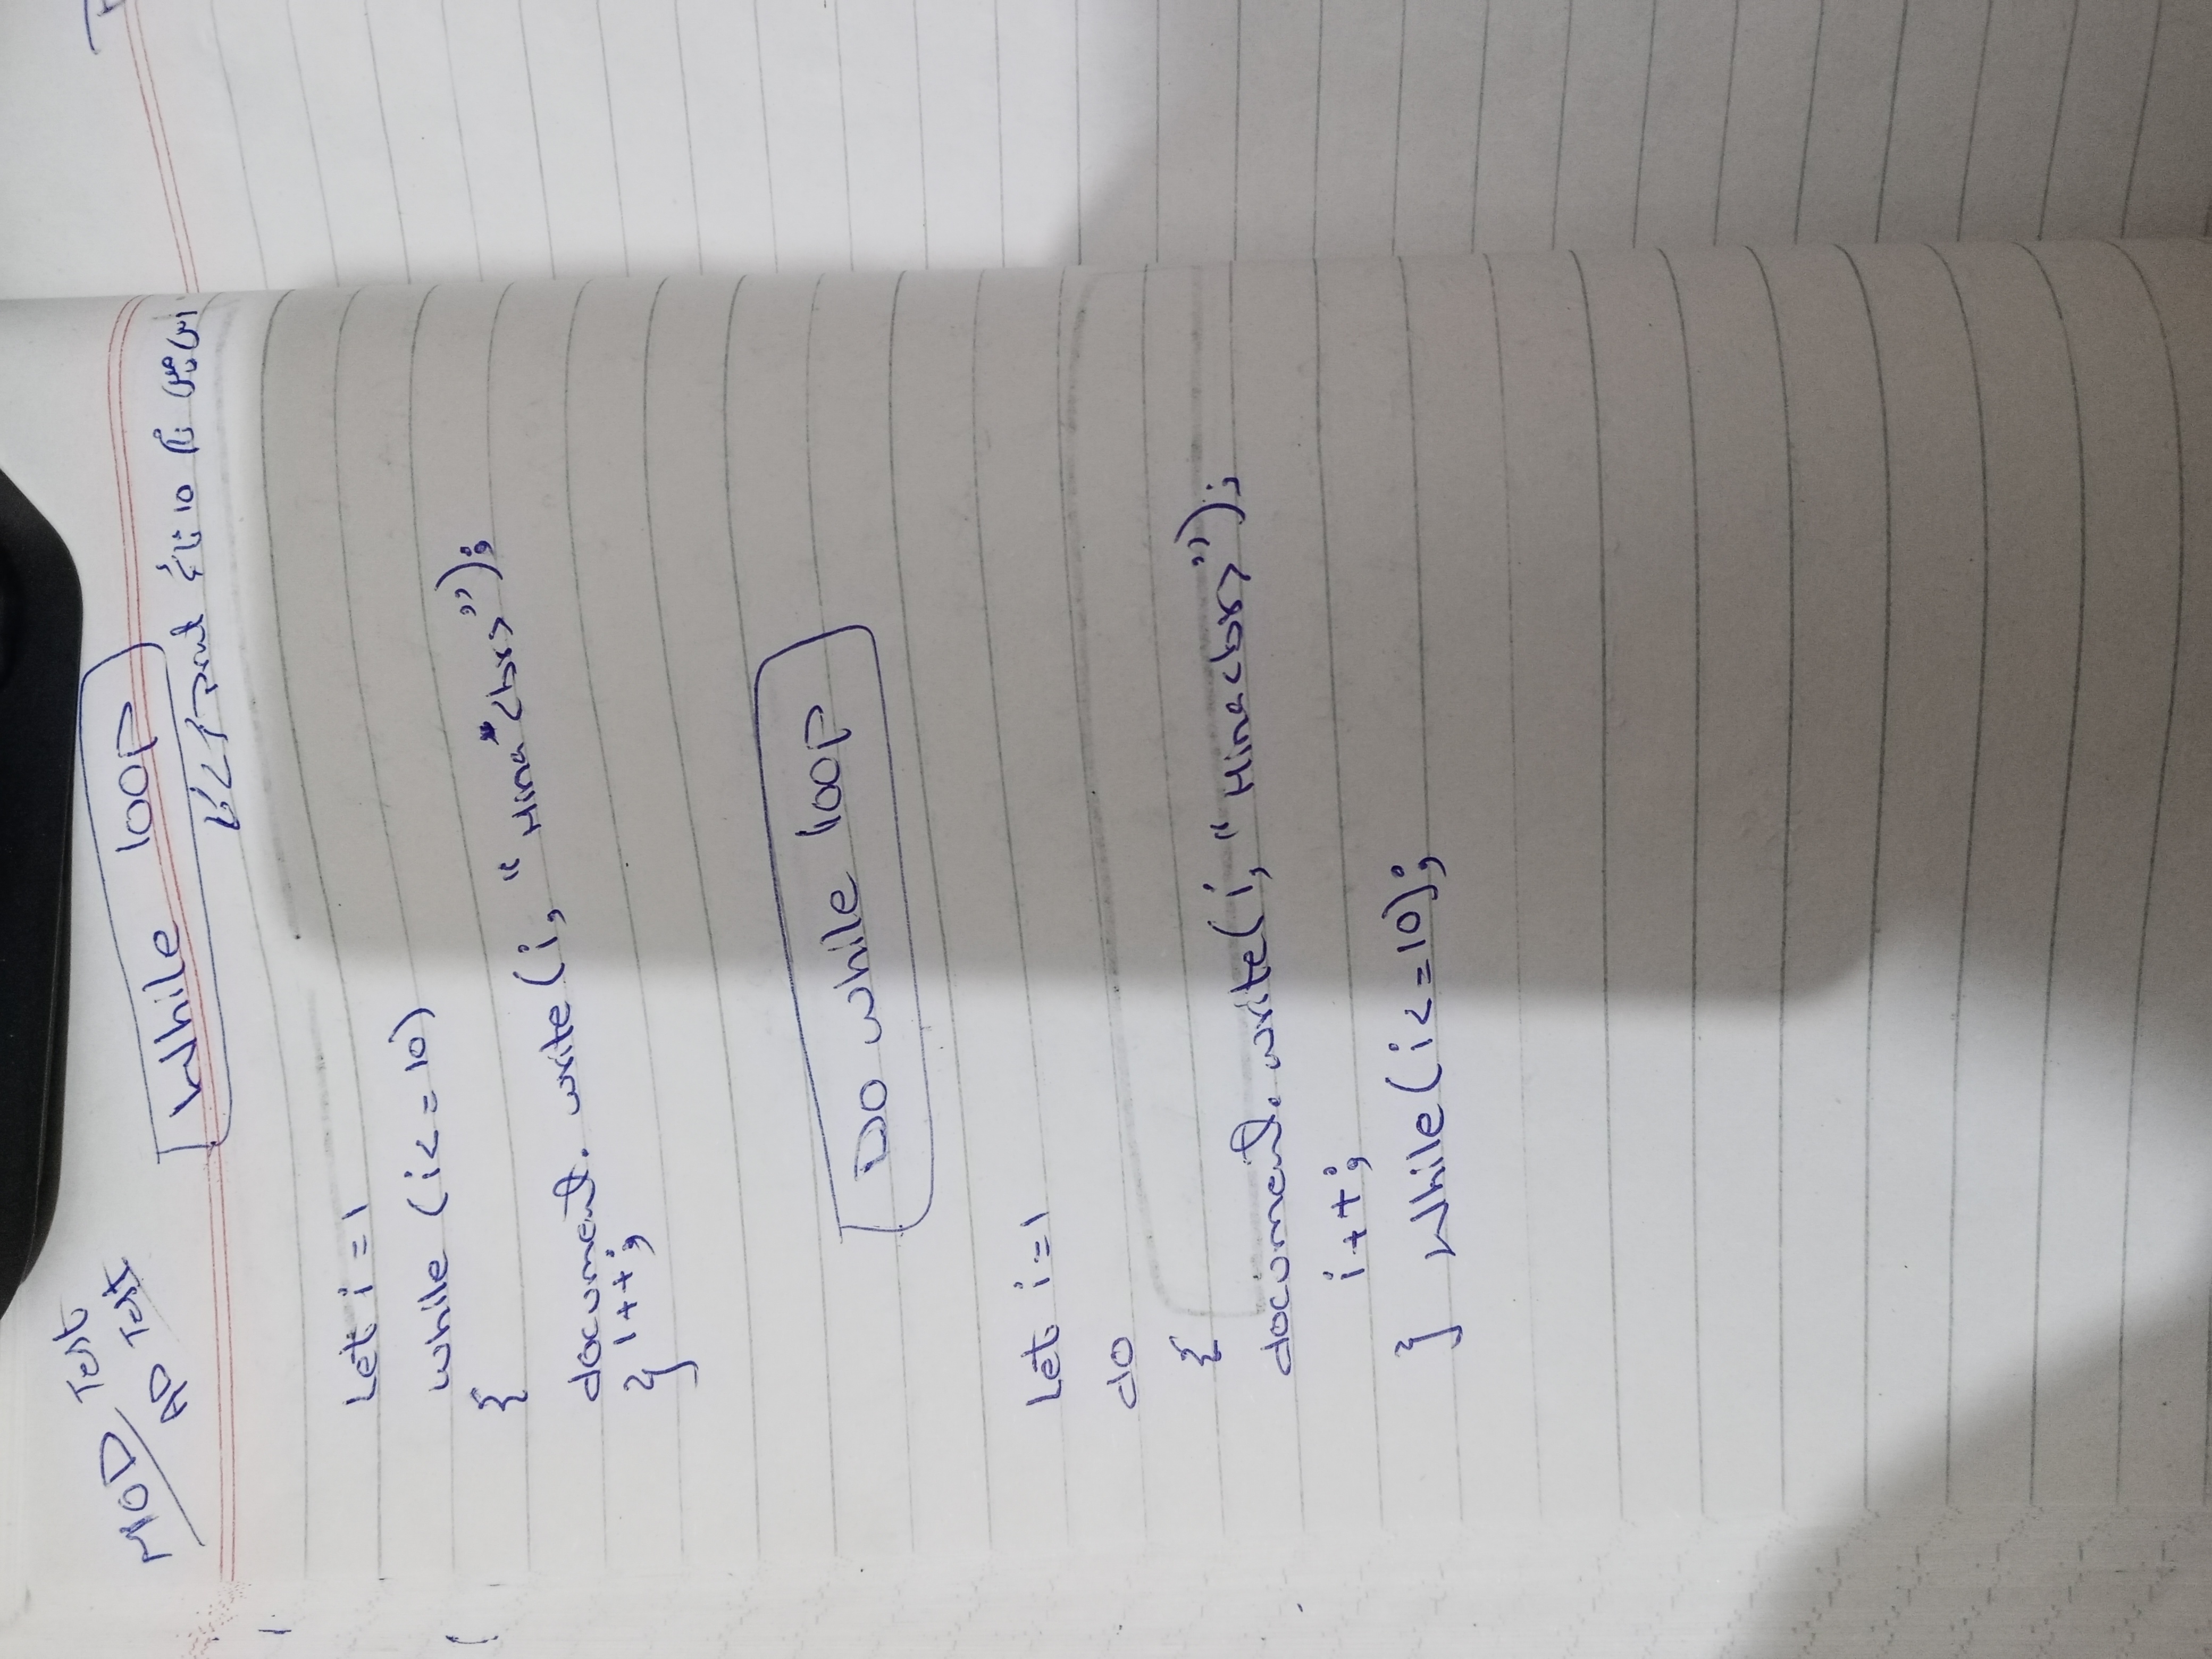 MOD Test
AP Test
While loop
let i = 1
while (i <= 10)
{
document. write (i, " Hina <br>");
i++;
}
DO while loop
let i = 1
do
{
document. write (i, " Hina<br>");
i++;
} while (i <= 10);